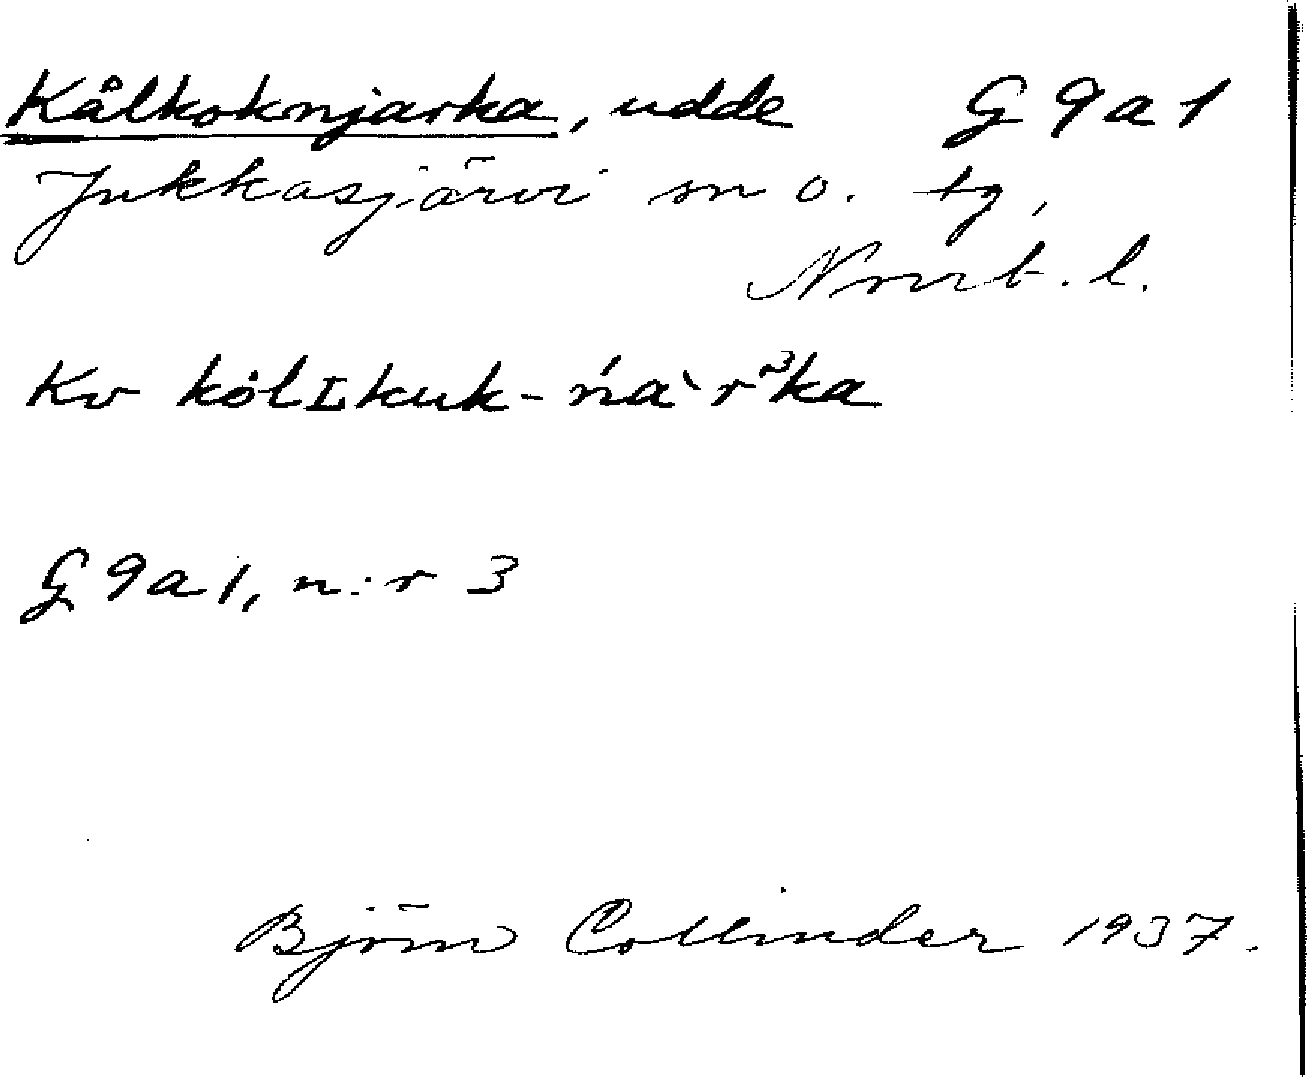 Kålkoknjarka, udde G 9 a 1
Jukkasjärvi sn o. tg,
Norrb. l.
Kv kòlʟkuk-ńa`r³ka
G 9 a 1, n:r 3
Björn Collinder 1937.